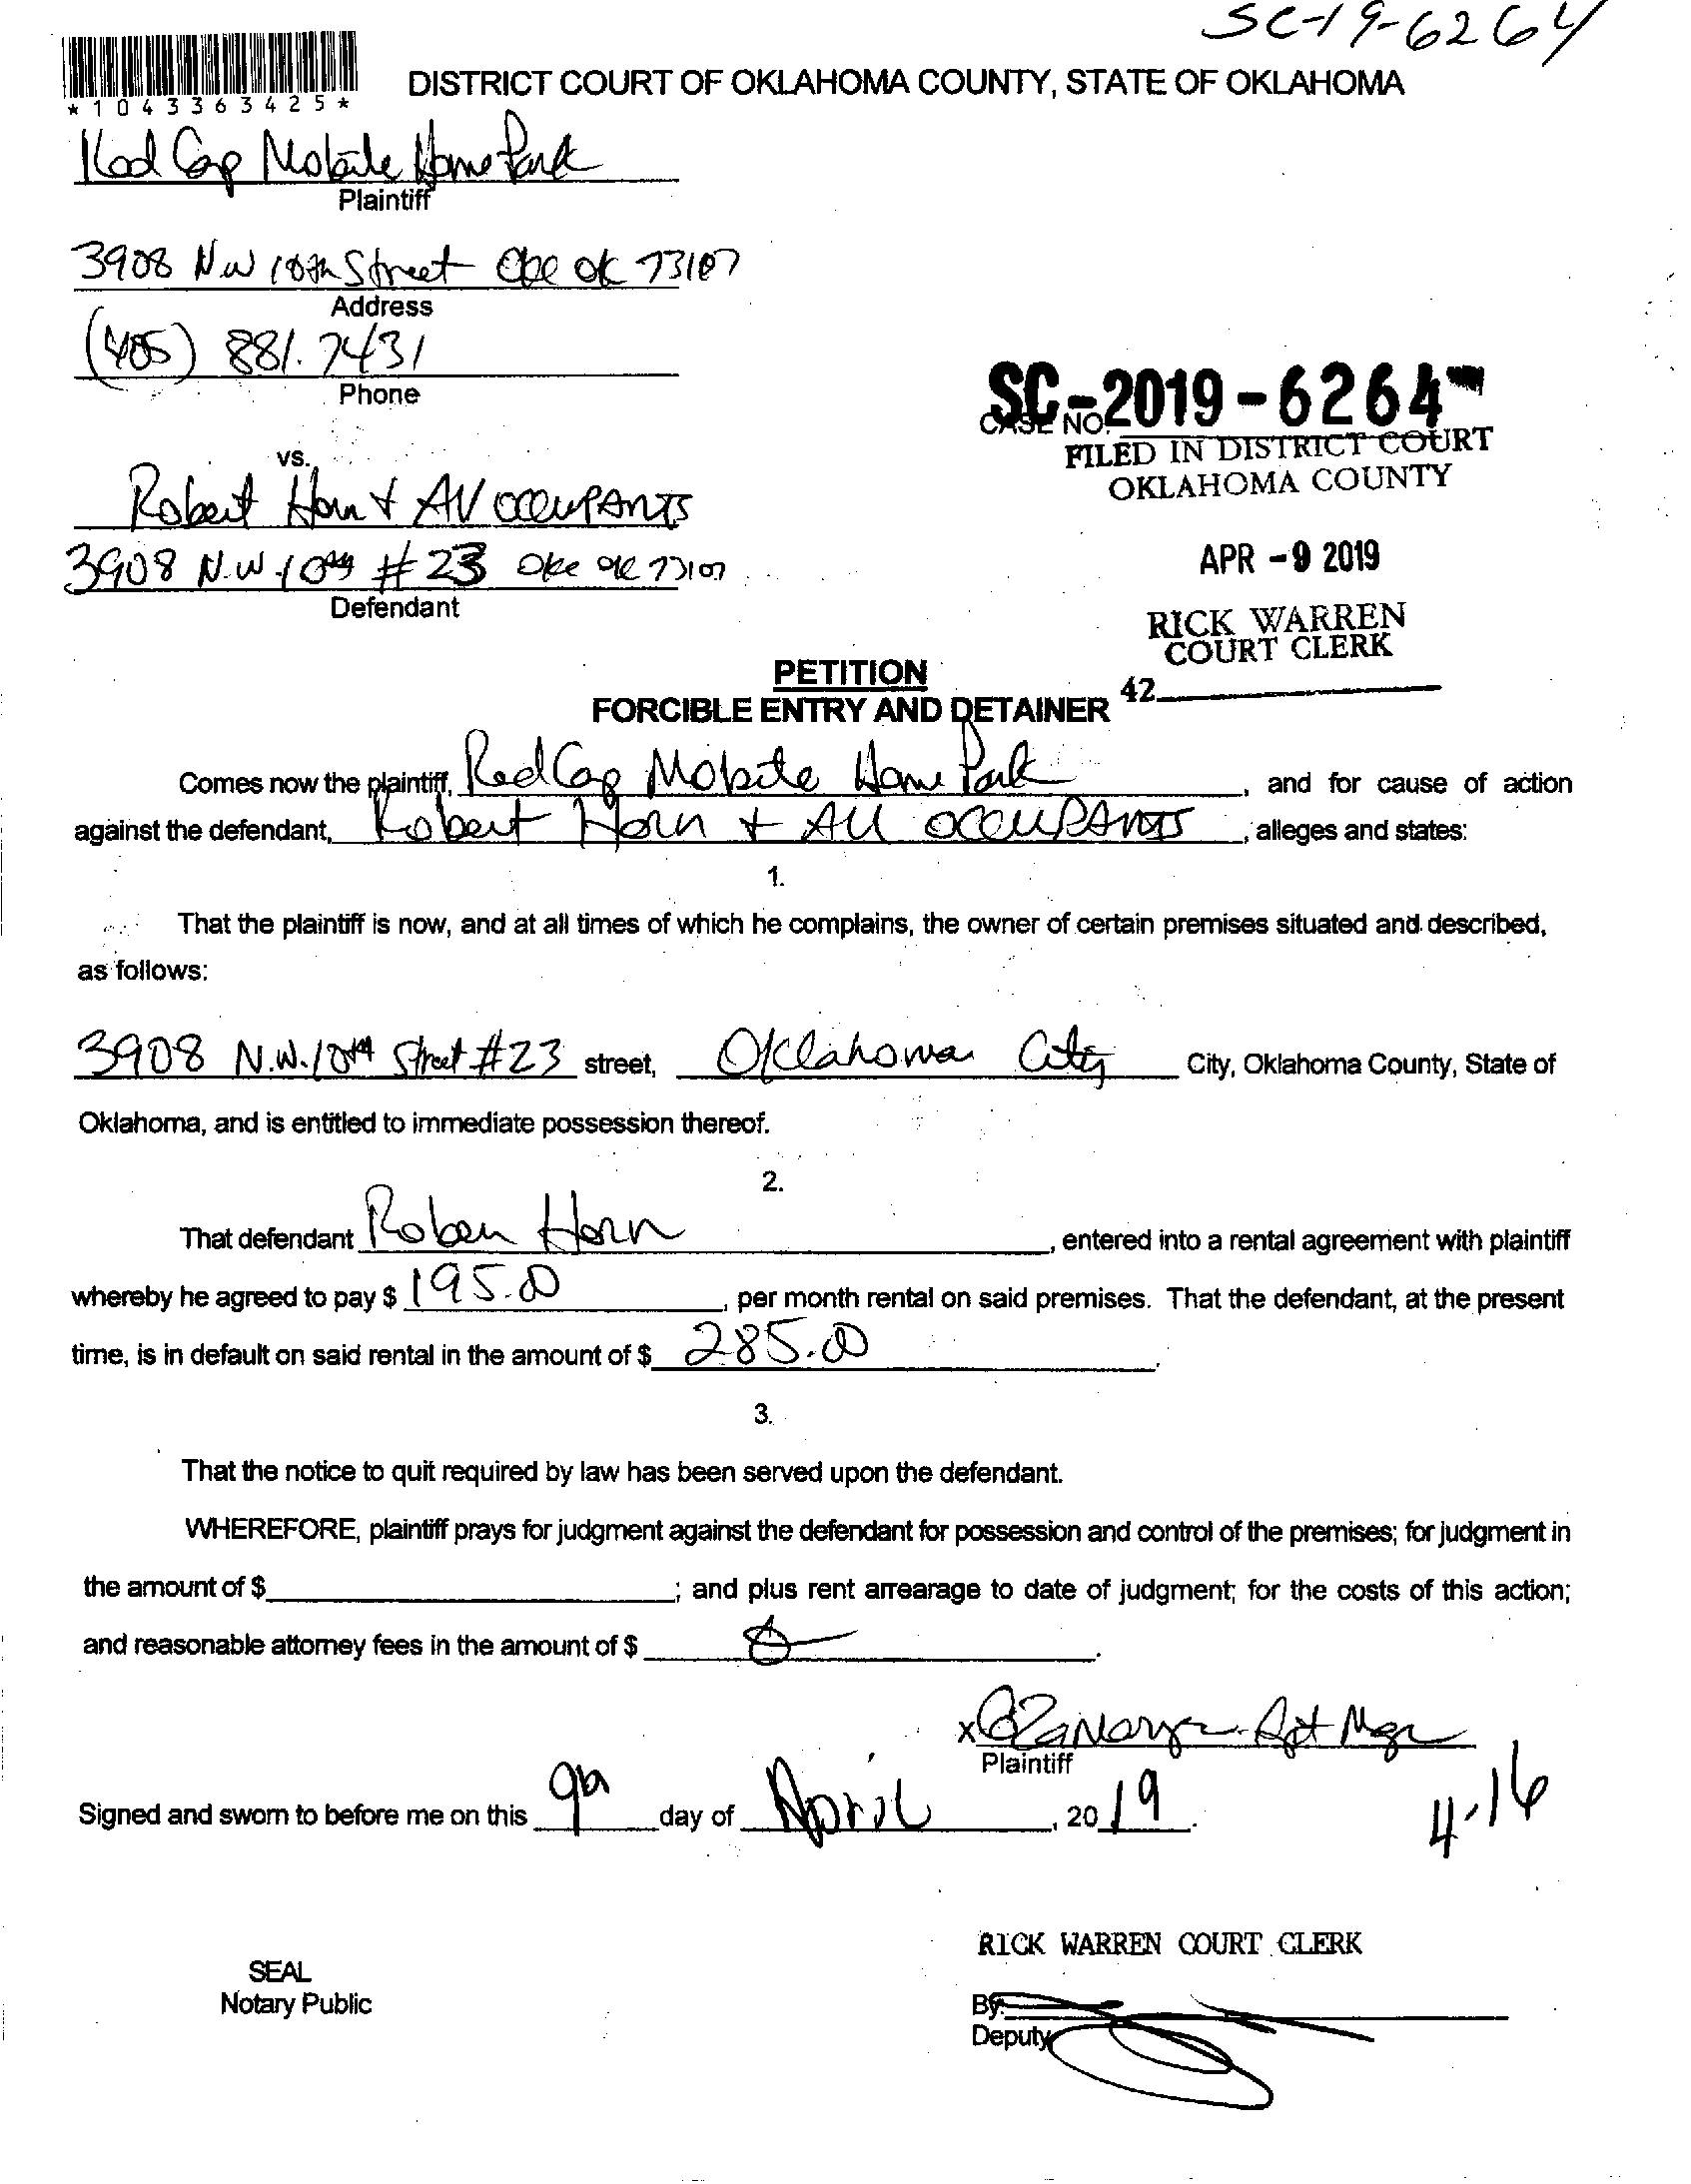 SC-19-6264
*1043363425*
DISTRICT COURT OF OKLAHOMA COUNTY, STATE OF OKLAHOMA
Red Cap Mobile Home Park
Plaintiff
3908 NW 10th Street OKC OK 73107
Address
(405) 881.7431
Phone
SC-2019-6264
CASE NO.
FILED IN DISTRICT COURT
OKLAHOMA COUNTY
vs.
Robert Horn + All OCCUPANTS
3908 N.W. 10th #23 OKC OK 73107
Defendant
APR -9 2019
RICK WARREN
COURT CLERK
42
PETITION
FORCIBLE ENTRY AND DETAINER
Comes now the plaintiff, Red Cap Mobile Home Park, and for cause of action
against the defendant, Robert Horn + All OCCUPANTS, alleges and states:
1.
That the plaintiff is now, and at all times of which he complains, the owner of certain premises situated and described,
as follows:
3908 N.W. 10th Street #23 street, Oklahoma City City, Oklahoma County, State of
Oklahoma, and is entitled to immediate possession thereof.
2.
That defendant Robert Horn, entered into a rental agreement with plaintiff
whereby he agreed to pay $ 195.00, per month rental on said premises. That the defendant, at the present
time, is in default on said rental in the amount of $ 285.00.
3.
That the notice to quit required by law has been served upon the defendant.
WHEREFORE, plaintiff prays for judgment against the defendant for possession and control of the premises; for judgment in
the amount of $; and plus rent arrearage to date of judgment; for the costs of this action;
and reasonable attorney fees in the amount of $.
x Mgr
Plaintiff
Signed and sworn to before me on this 9th day of April, 2019.
4-16
RICK WARREN COURT CLERK
SEAL
Notary Public
By:
Deputy